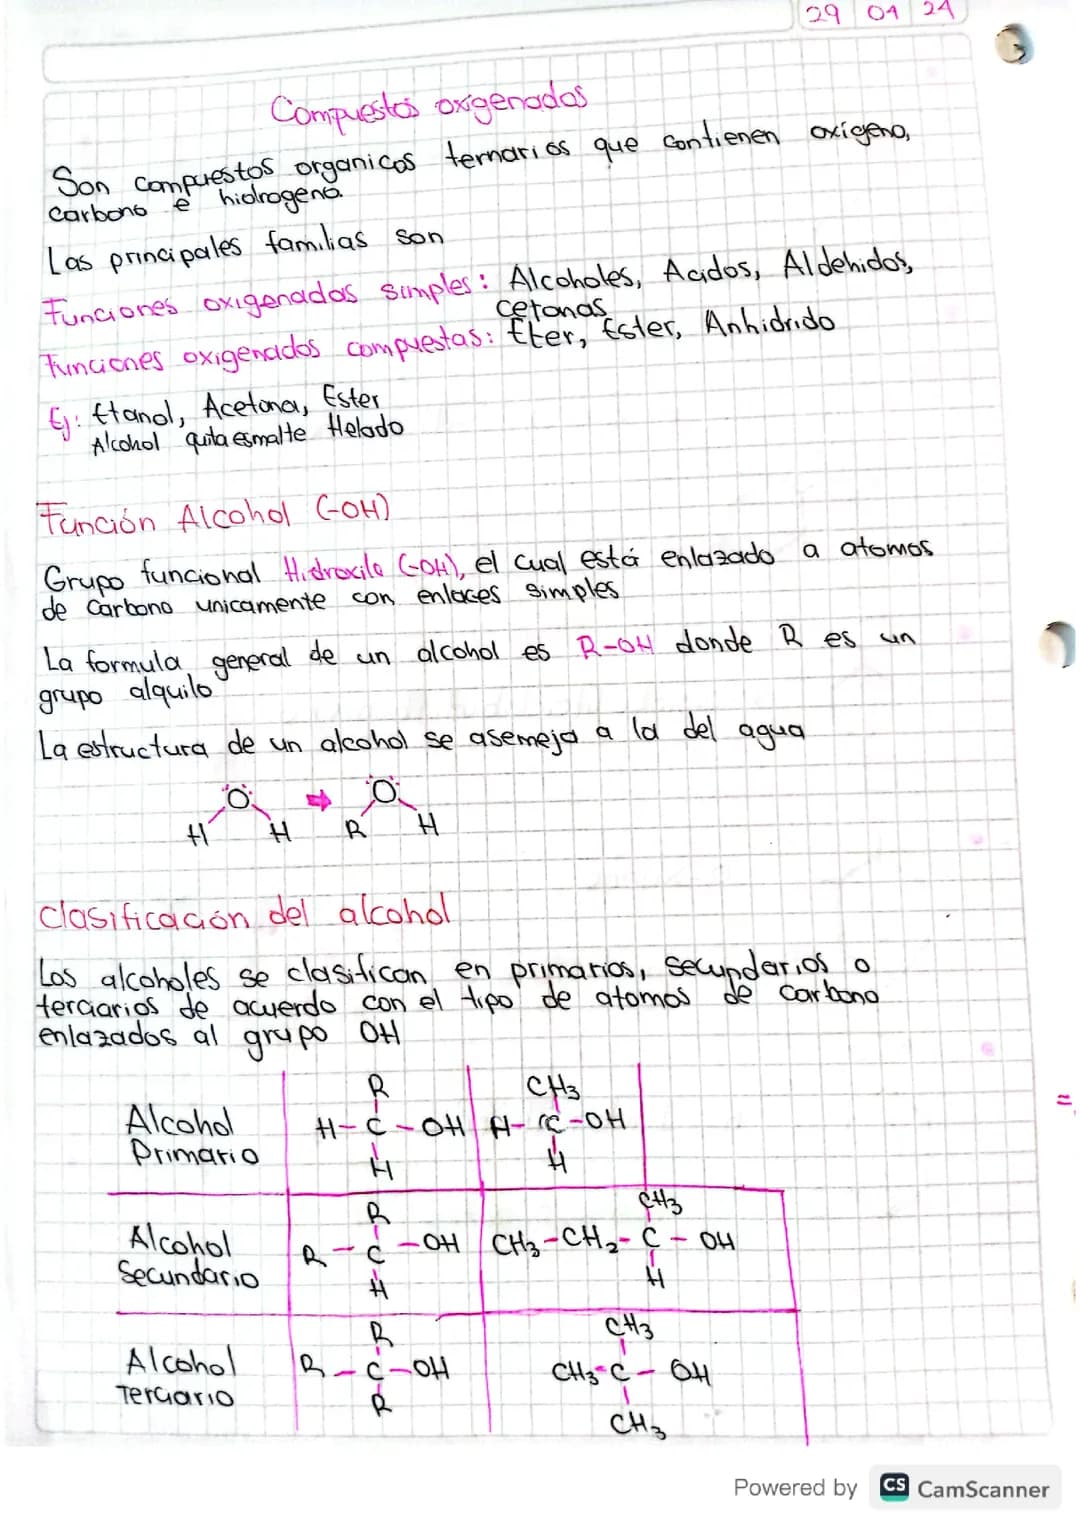 29 01 24
Compuestos oxigenados
Son compuestos organicos ternarios que contienen oxígeno,
carbono e hidrogeno.
Las principales familias son
Funciones oxigenadas simples: Alcoholes, Acidos, Aldehidos,
cetonas
Funciones oxigenados compuestas: Eter, Ester, Anhidrido
Ej: Etanol, Acetona, Ester
Alcohol quita esmalte Helado
Función Alcohol (-OH)
Grupo funcional Hidroxilo (-OH), el cual está enlazado a atomos
de carbono unicamente con enlaces simples
La formula general de un alcohol es R-OH donde R es un
grupo alquilo
La estructura de un alcohol se asemeja a la del agua
O ⇒ O
H H R H
Clasificación del alcohol
Los alcoholes se clasifican en primarios, secundarios o
terciarios de acuerdo con el tipo de atomos de carbono
enlazados al grupo OH
R CH3
Alcohol H-C-OH H-C-OH
Primario H H
R CH3
Alcohol R-C-OH CH3-CH2-C-OH
Secundario H H
R CH3
Alcohol R-C-OH CH3-C-OH
Terciario R CH3
Powered by CS CamScanner